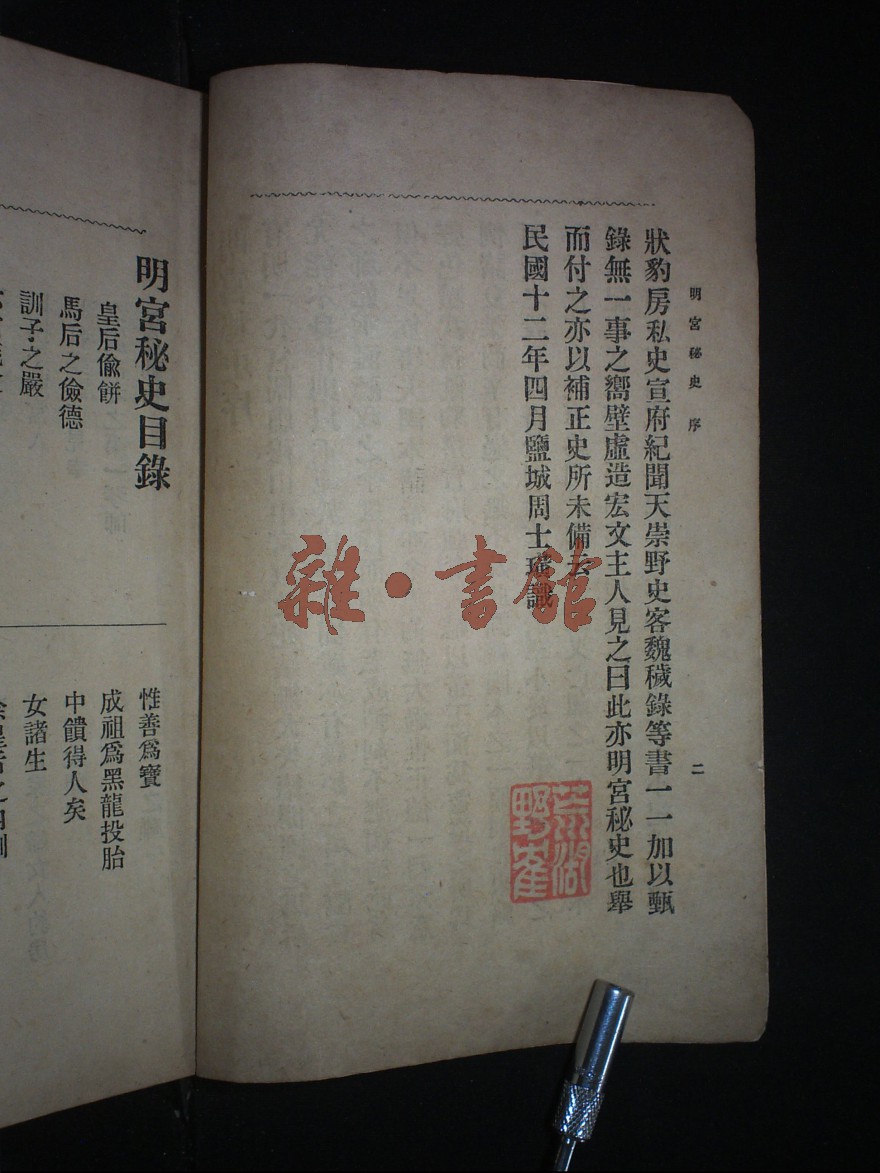 明宮秘史 序
二
狀豹房私史宣府紀聞天崇野史客魏穢錄等書一一加以甄
錄無一事之嚮壁虛造宏文主人見之曰此亦明宮秘史也舉
而付之亦以補正史所未備云
民國十二年四月鹽城周士 識
雜·書館
明宮秘史目錄
皇后偸餅
馬后之儉德
訓子之嚴
惟善爲寶
成祖爲黑龍投胎
中饋得人矣
女諸生